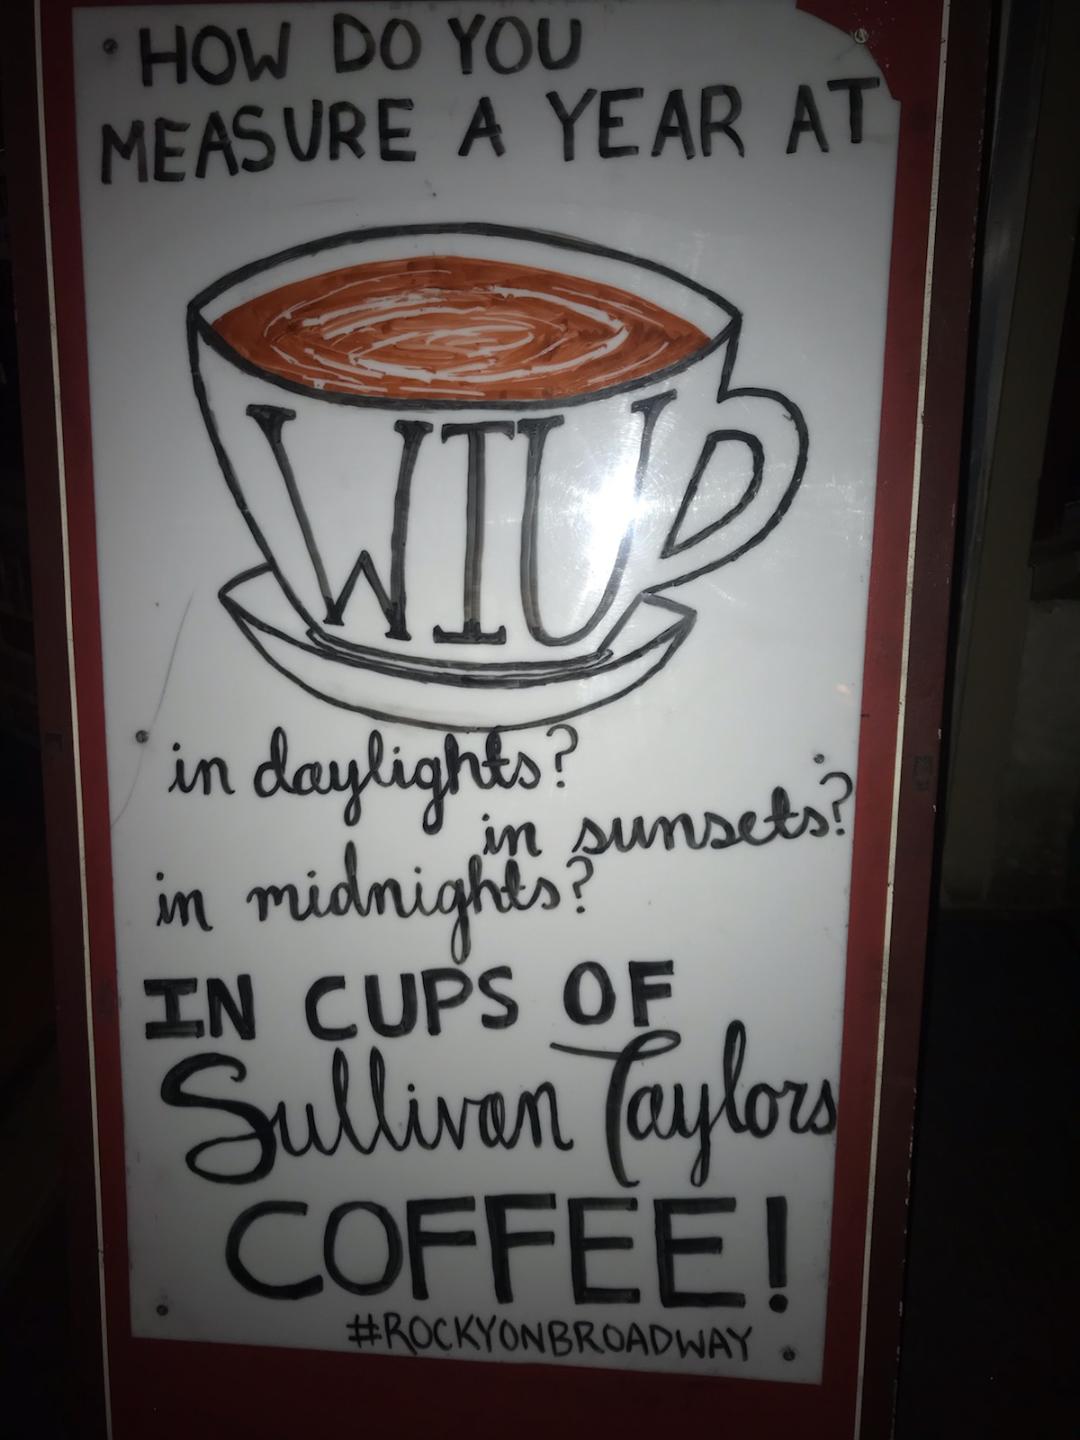 HOW DO YOU
MEASURE A YEAR AT
WIU
in daylights?
in sunsets?
in midnights?
IN CUPS OF
Sullivan Taylors
COFFEE!
#ROCKYONBROADWAY